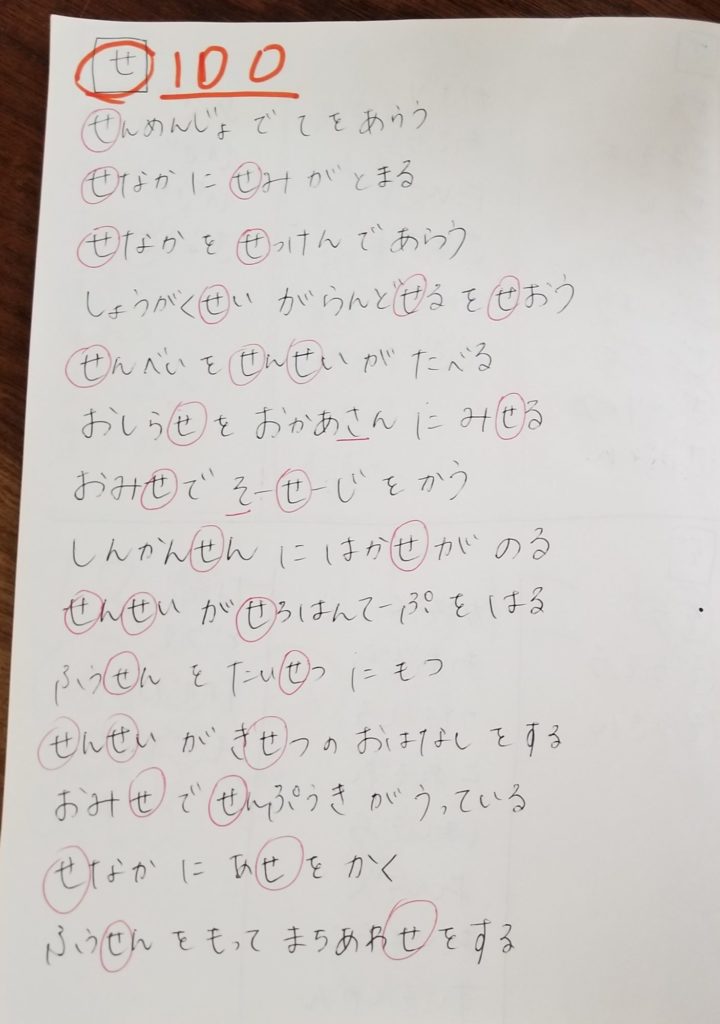 せ 100
せんめんじょ で て を あらう
せなか に せみ が とまる
せなか を せっけん で あらう
しょうがくせい が らんどせる を せおう
せんべい を せんせい が たべる
おしらせ を おかあさん に みせる
おみせ で そーせーじ を かう
しんかんせん に はかせ が のる
せんせい が せろはんてーぷ を はる
ふうせん を たいせつ に もつ
せんせい が きせつ の おはなし を する
おみせ で せんぷうき が うっている
せなか に あせ を かく
ふうせん を もって まちあわせ を する